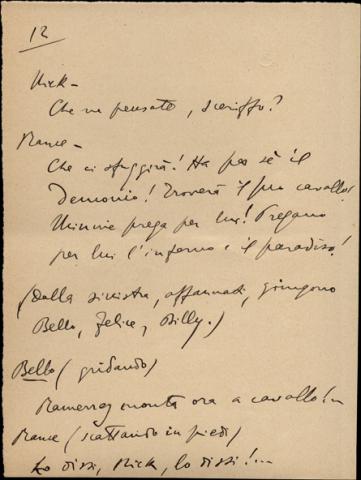 12
Nick –
Che ne pensate, sceriffo?
Rance –
Che ci sfuggirà! Ha per sè il
Demonio! Troverà il suo cavallo!
Minnie prega per lui! Pregano
per lui l'inferno e il paradiso!
(Dalla sinistra, affannati, giungono
Bello, Felice, Billy.)
Bello (gridando)
Ramerrez monta ora a cavallo!..
Rance (scattando in piedi)
Lo dissi, Nick, lo dissi!...